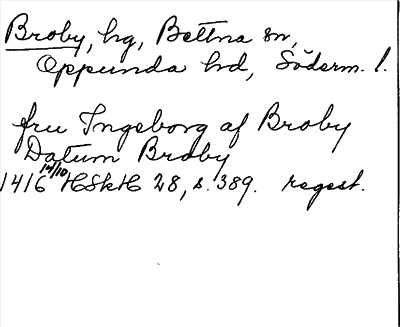 Broby, hg, Bettna sn,
Oppunda hd, Söderm. l.
fru Ingeborg af Broby
Datum Broby
1416 14/10 HSkH 28, s. 389. regest.